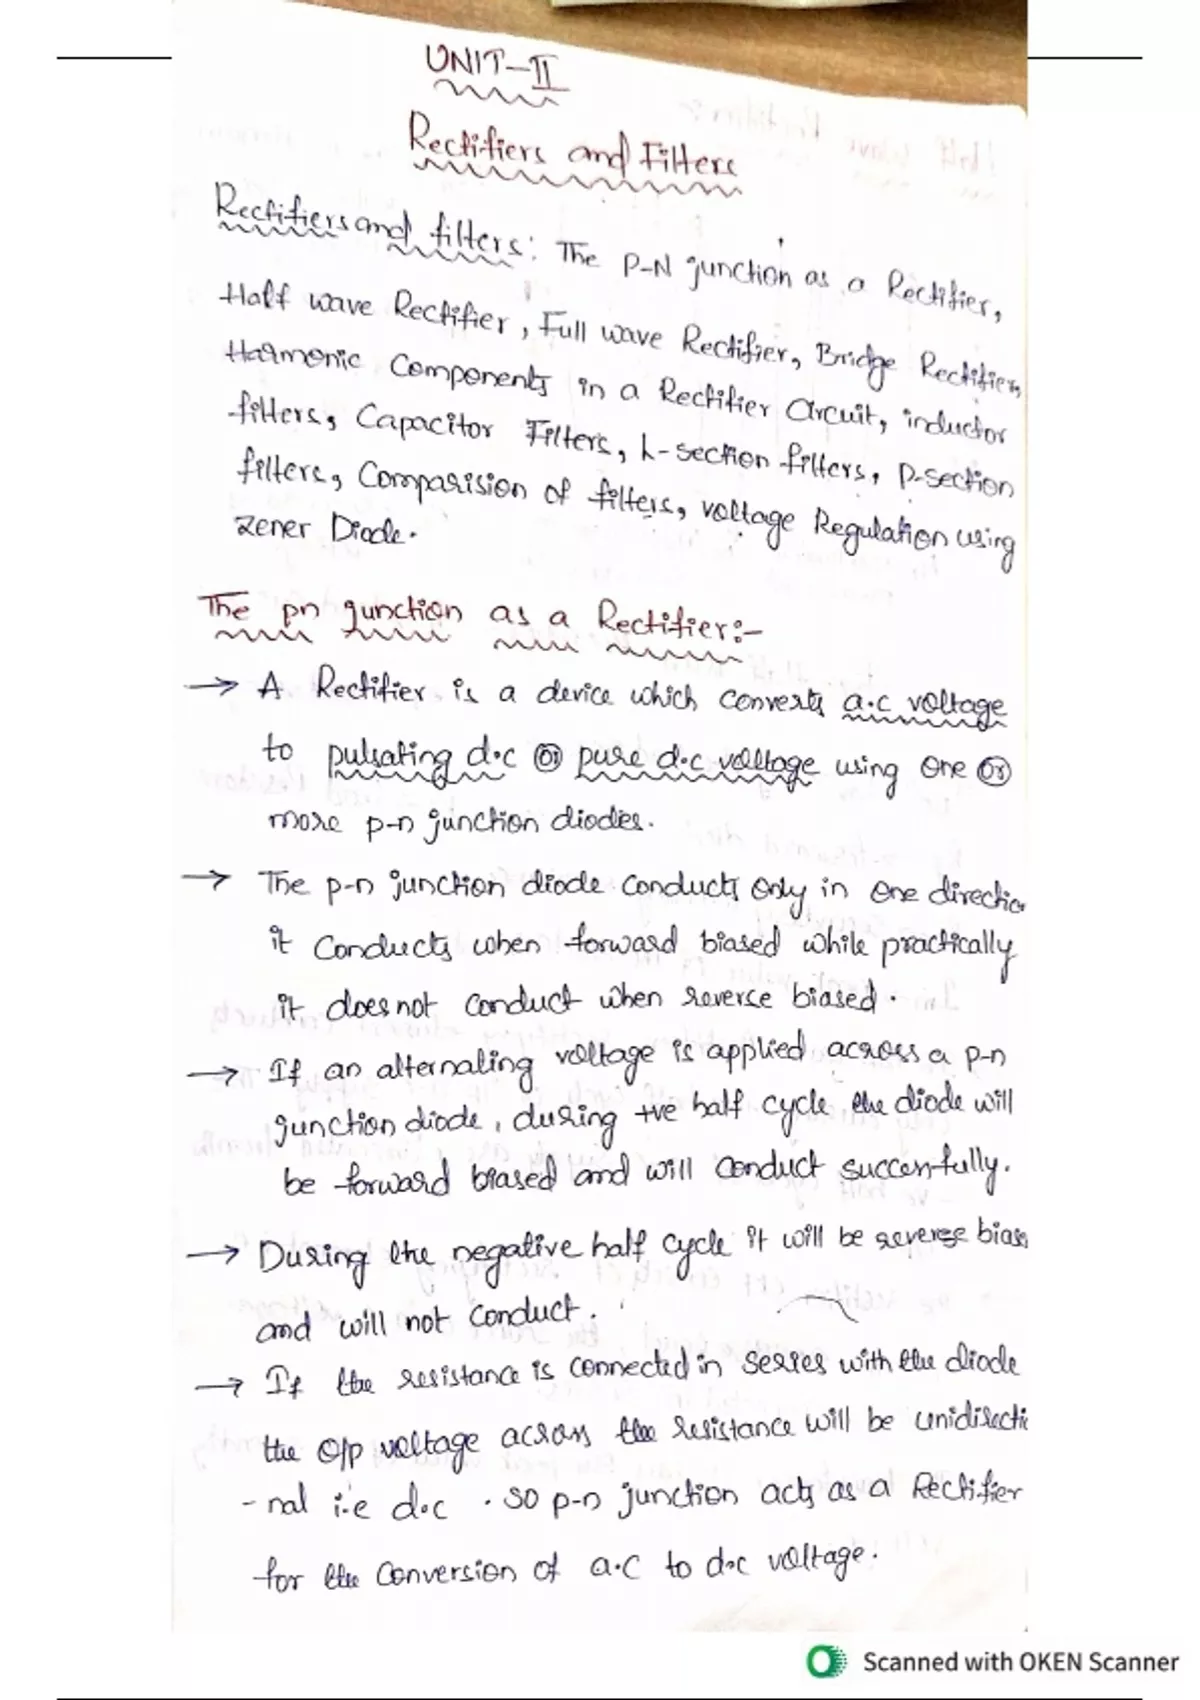 UNIT-II
Rectifiers and Filters
Rectifiers and filters: The P-N junction as a Rectifier,
Half wave Rectifier, Full wave Rectifier, Bridge Rectifier,
Harmonic Components in a Rectifier Circuit, inductor
filters, Capacitor Filters, L-section filters, P-section
filters, Comparision of filters, voltage Regulation using
zener Diode.
The pn junction as a Rectifier:-
→ A Rectifier is a device which converts a.c voltage
to pulsating d.c or pure d.c voltage using one or
more p-n junction diodes.
→ The p-n junction diode conducts only in one directio
it conducts when forward biased while practically
it does not conduct when reverse biased.
→ If an alternating voltage is applied across a p-n
junction diode, during +ve half cycle the diode will
be forward biased and will conduct successfully.
→ During the negative half cycle it will be reverse bias
and will not conduct.
→ If the resistance is connected in series with the diode
the o/p voltage across the resistance will be unidirectio
-nal i.e d.c . so p-n junction acts as a Rectifier
for the conversion of a.c to d.c voltage.
Scanned with OKEN Scanner